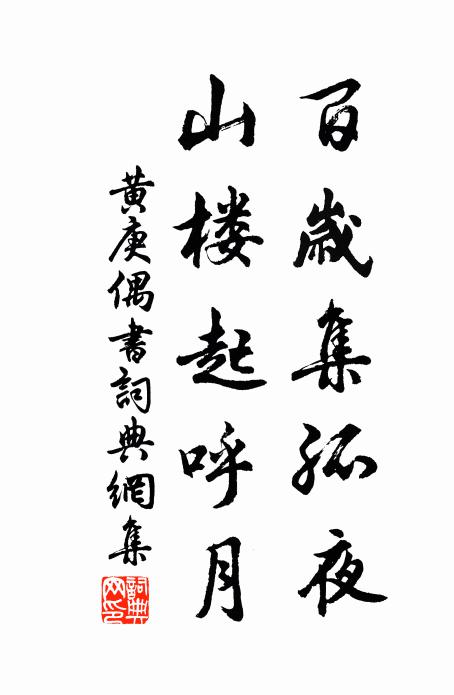 百歲集孤夜
山楼起呼月
黄庚偶書詞典網集
詞典
网印